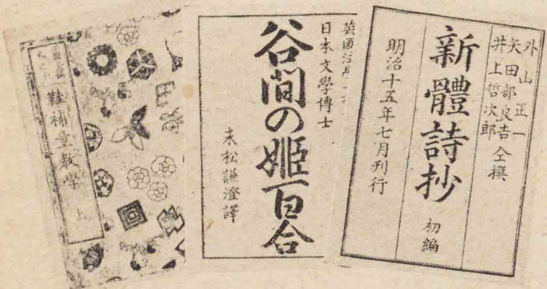 外山正一
矢田部良吉 仝撰
井上哲次郎
新體詩抄 初編
明治十五年七月刊行
日本文學博士
谷間の姫百合
末松謙澄譯
鞋補童教學 上